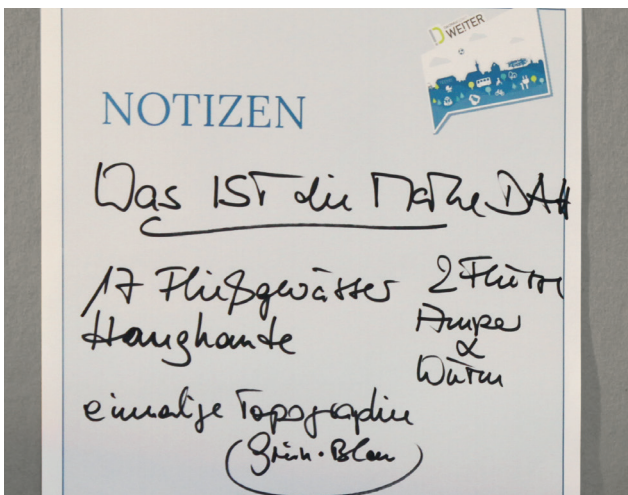 WEITER
NOTIZEN
Was IST die Marke DAH
17 Fließgewässer
2 Flüsse
Hangkante
Amper
&
Würm
einmalige Topographie
(Grün·Blau)